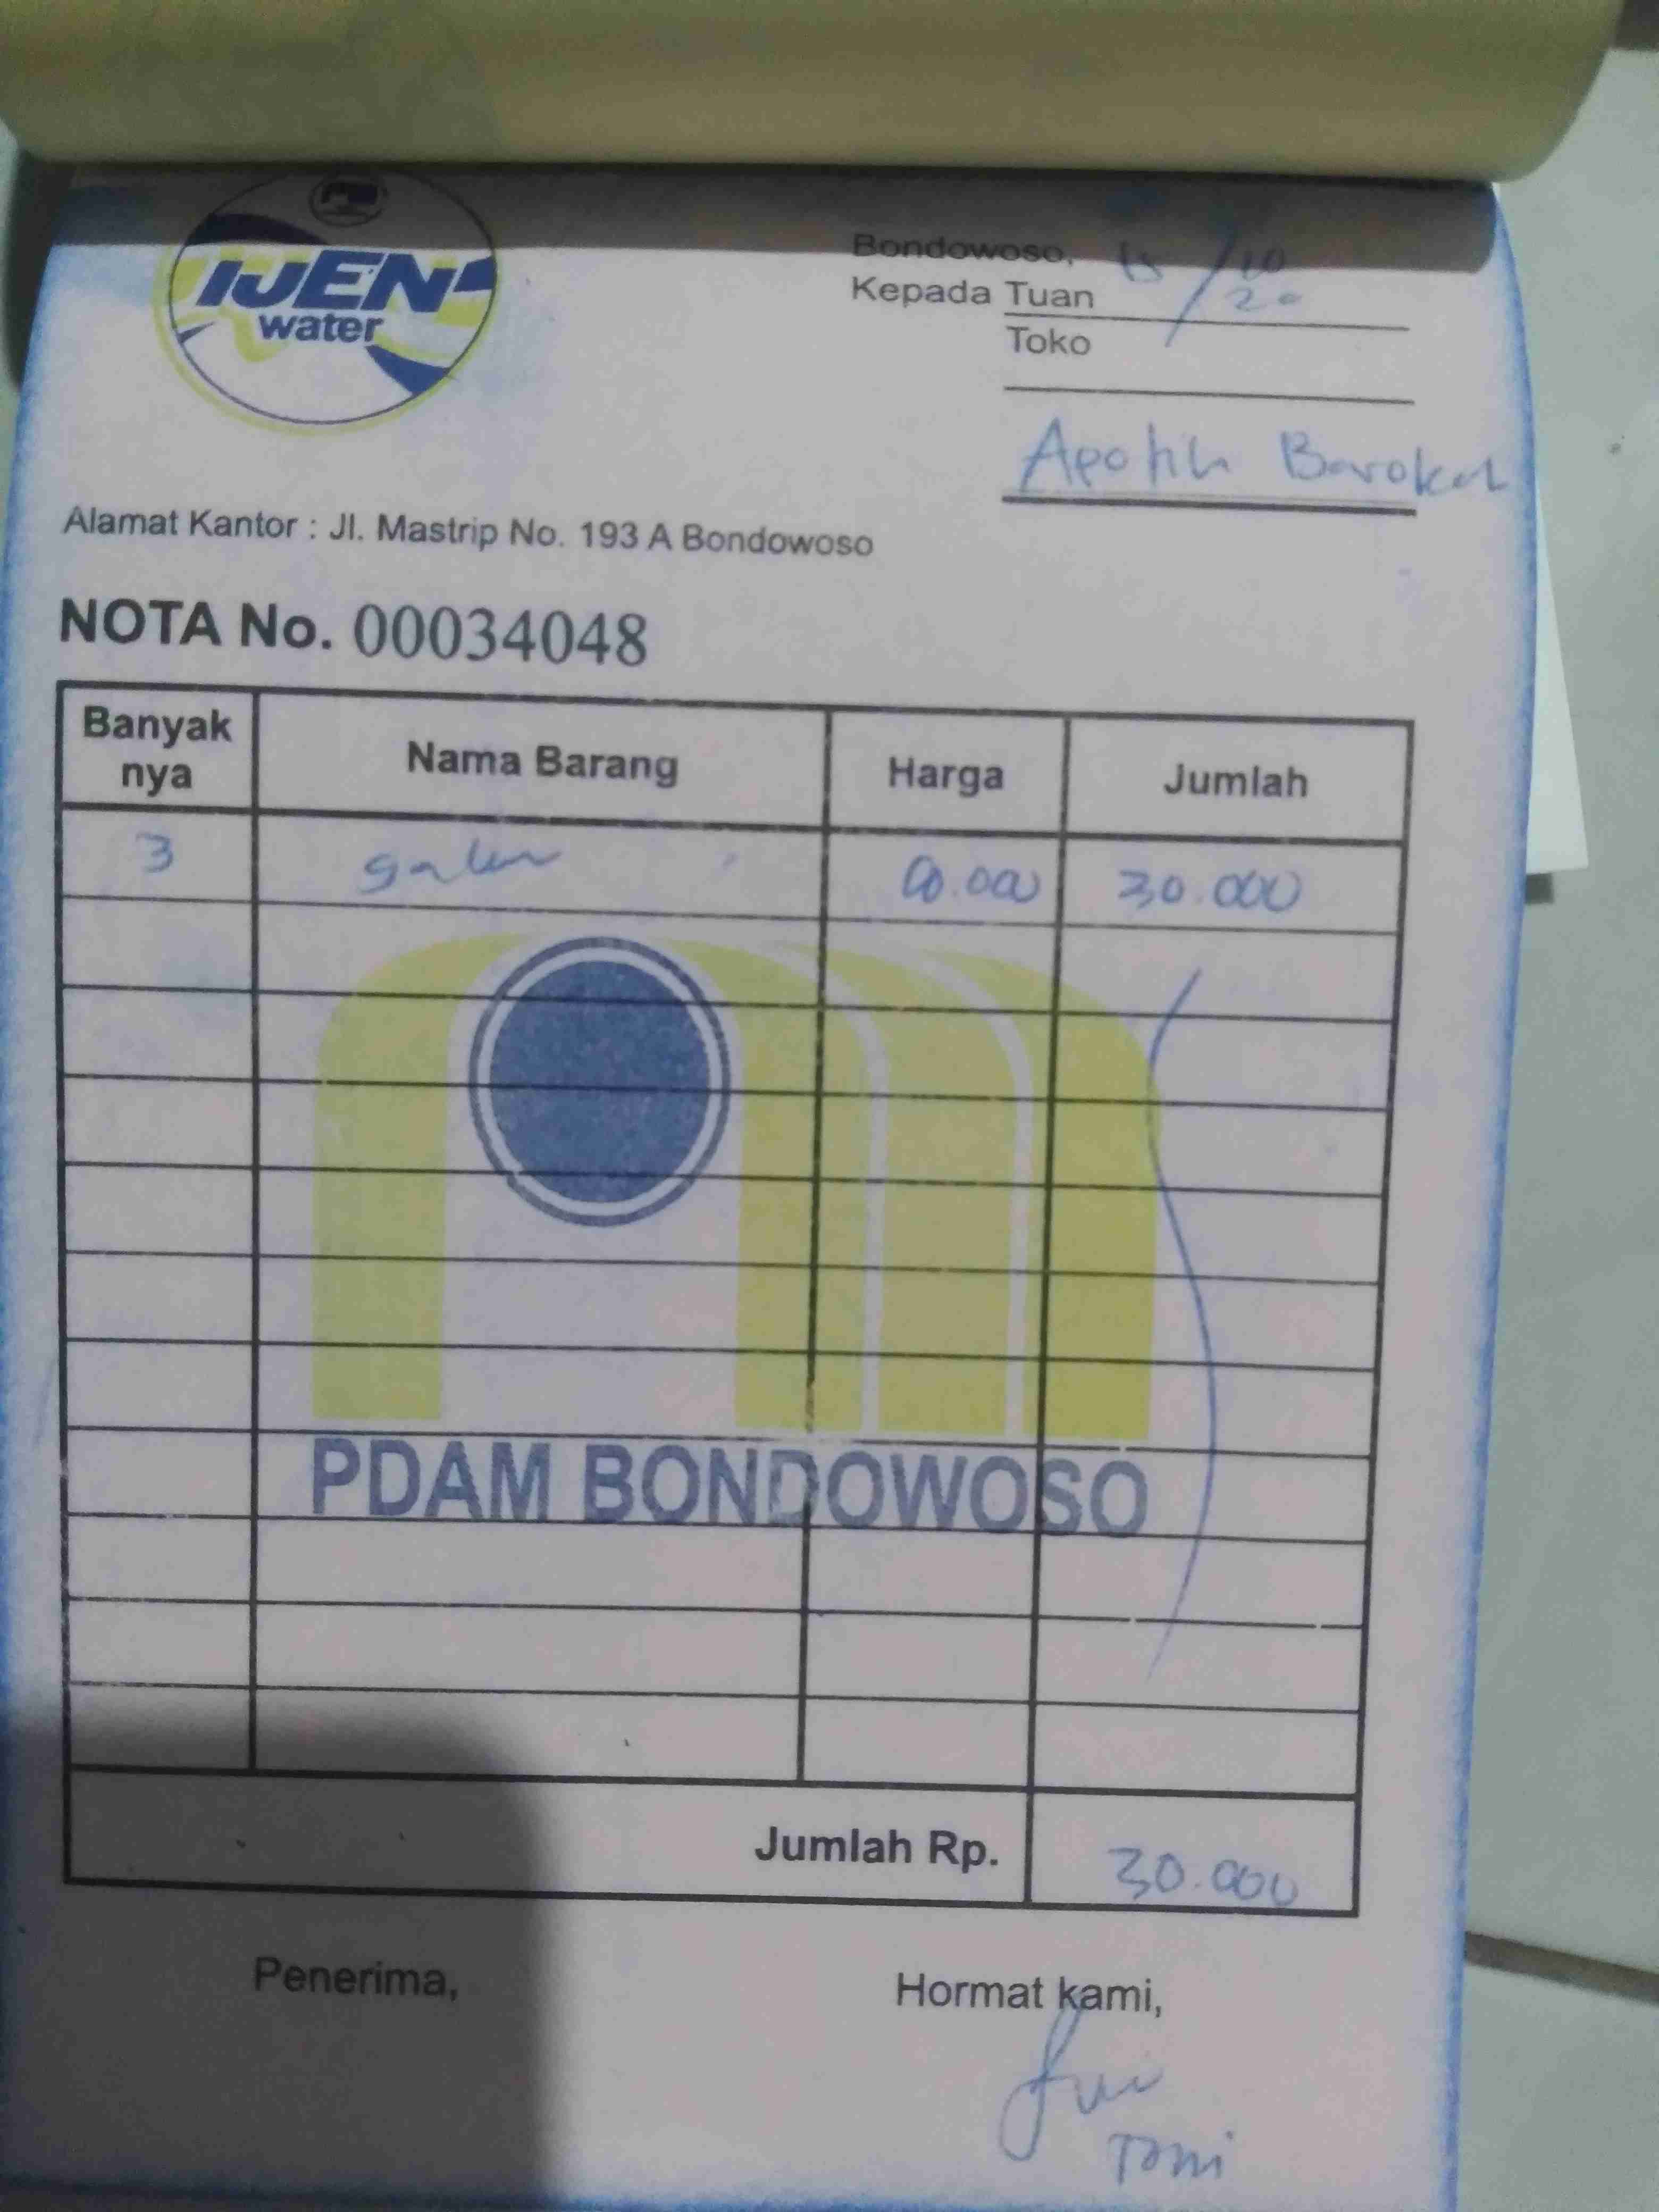 IJEN
water
Bondowoso, 15/10
20
Kepada Tuan
Toko
Apotik Barokah
Alamat Kantor : Jl. Mastrip No. 193 A Bondowoso
NOTA No. 00034048
Banyak nya Nama Barang Harga Jumlah
3 galon 10.000 30.000
PDAM BONDOWOSO
Jumlah Rp. 30.000
Penerima, Hormat kami,
Toni